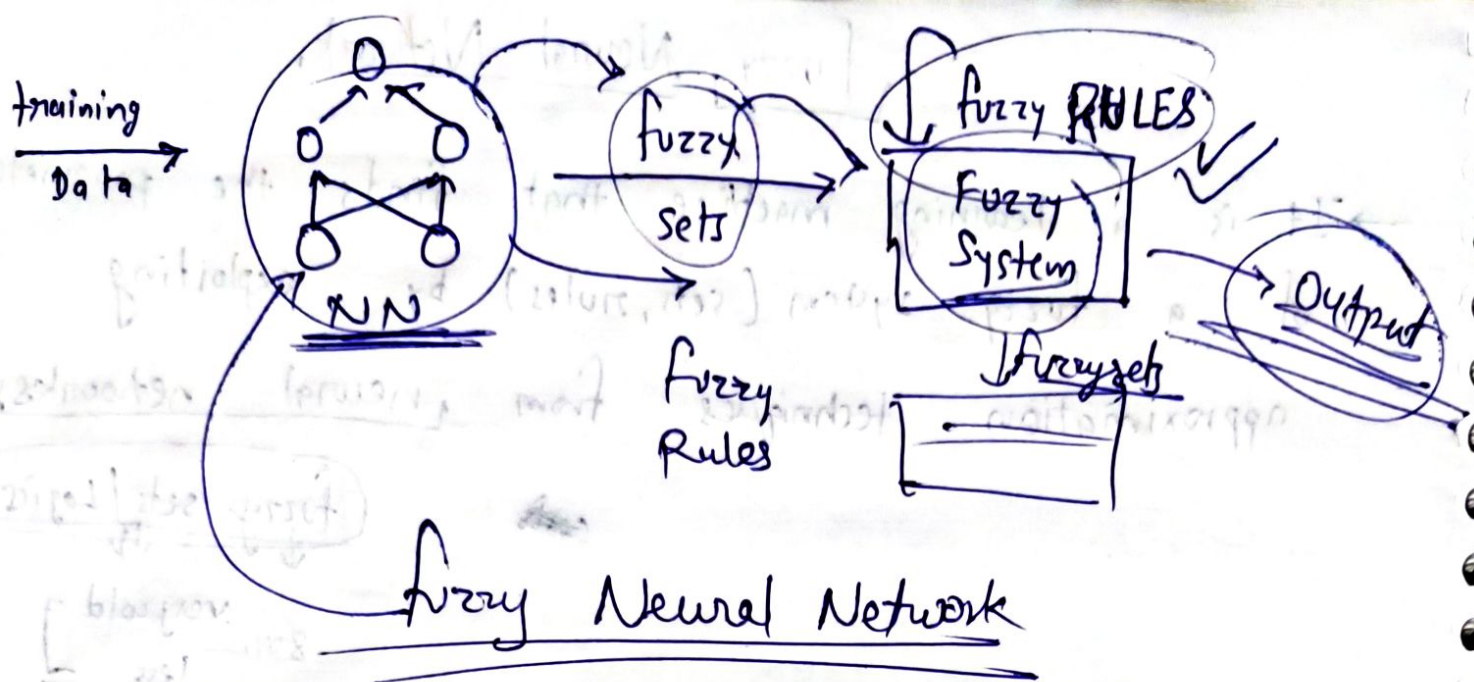 training
Data
NN
fuzzy
sets
fuzzy
Rules
fuzzy RULES
Fuzzy
System
fuzzysets
Output
fuzzy Neural Network